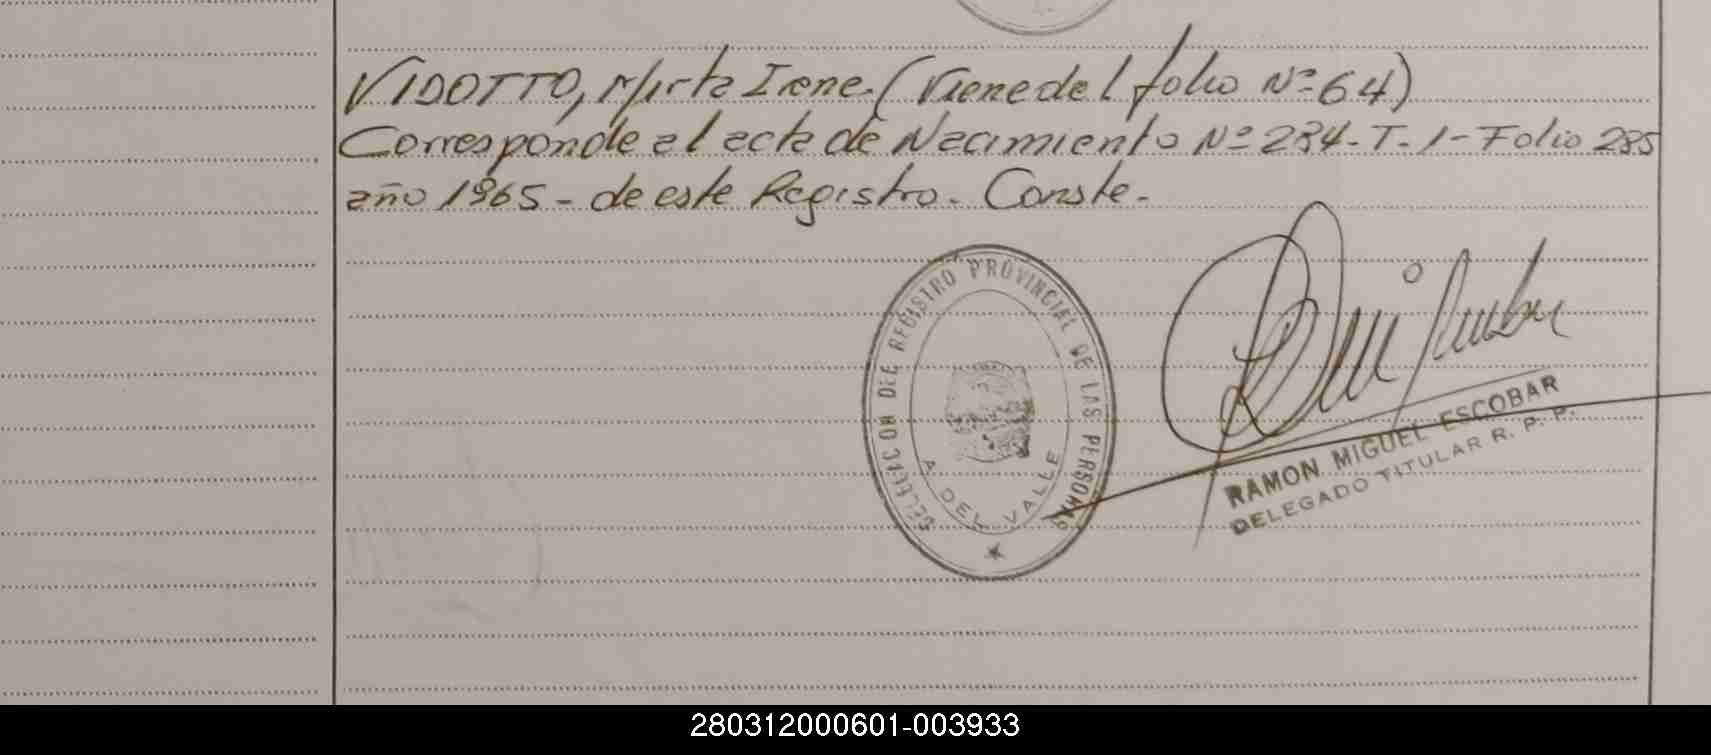 VIDOTTO, Mirta Irene. (Viene del folio Nº 64)
Corresponde al acta de Nacimiento Nº 234 - T. 1 - Folio 285
año 1965 - de este Registro. Conste.
DELEGACION DEL REGISTRO PROVINCIAL DE LAS PERSONAS
A. DEL VALLE
RAMON MIGUEL ESCOBAR
DELEGADO TITULAR R. P. P.
280312000601-003933